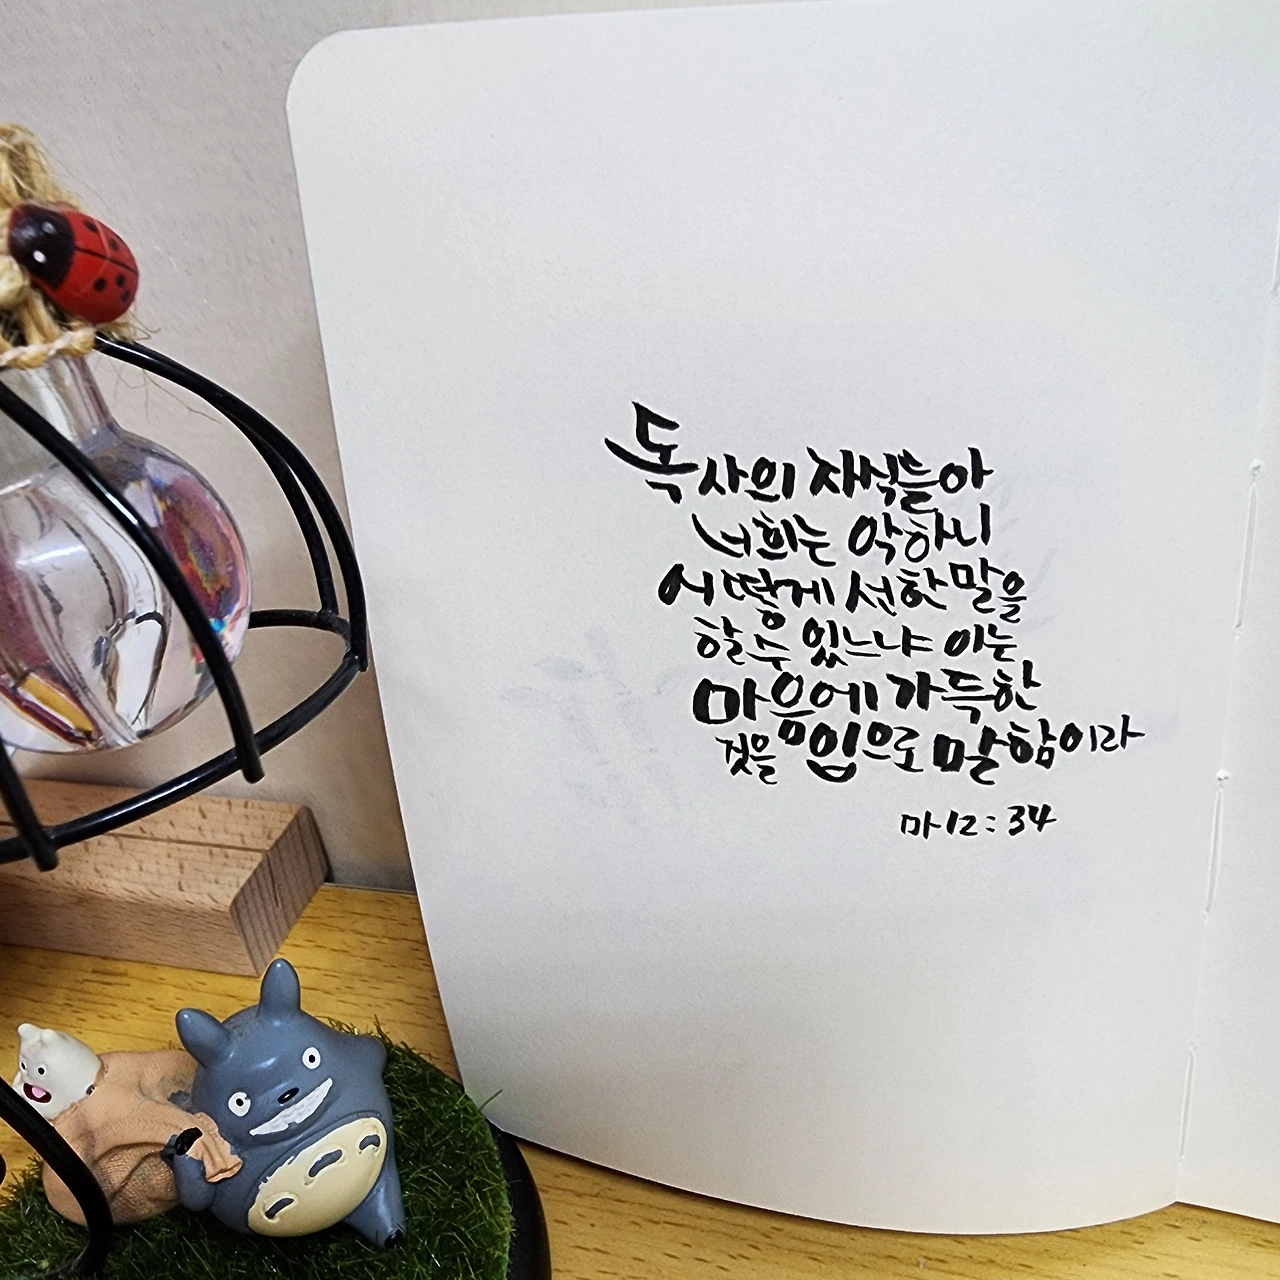 독사의 자식들아
너희는 악하니
어떻게 선한 말을
할 수 있느냐 이는
마음에 가득한
것을 입으로 말함이라
마 12 : 34